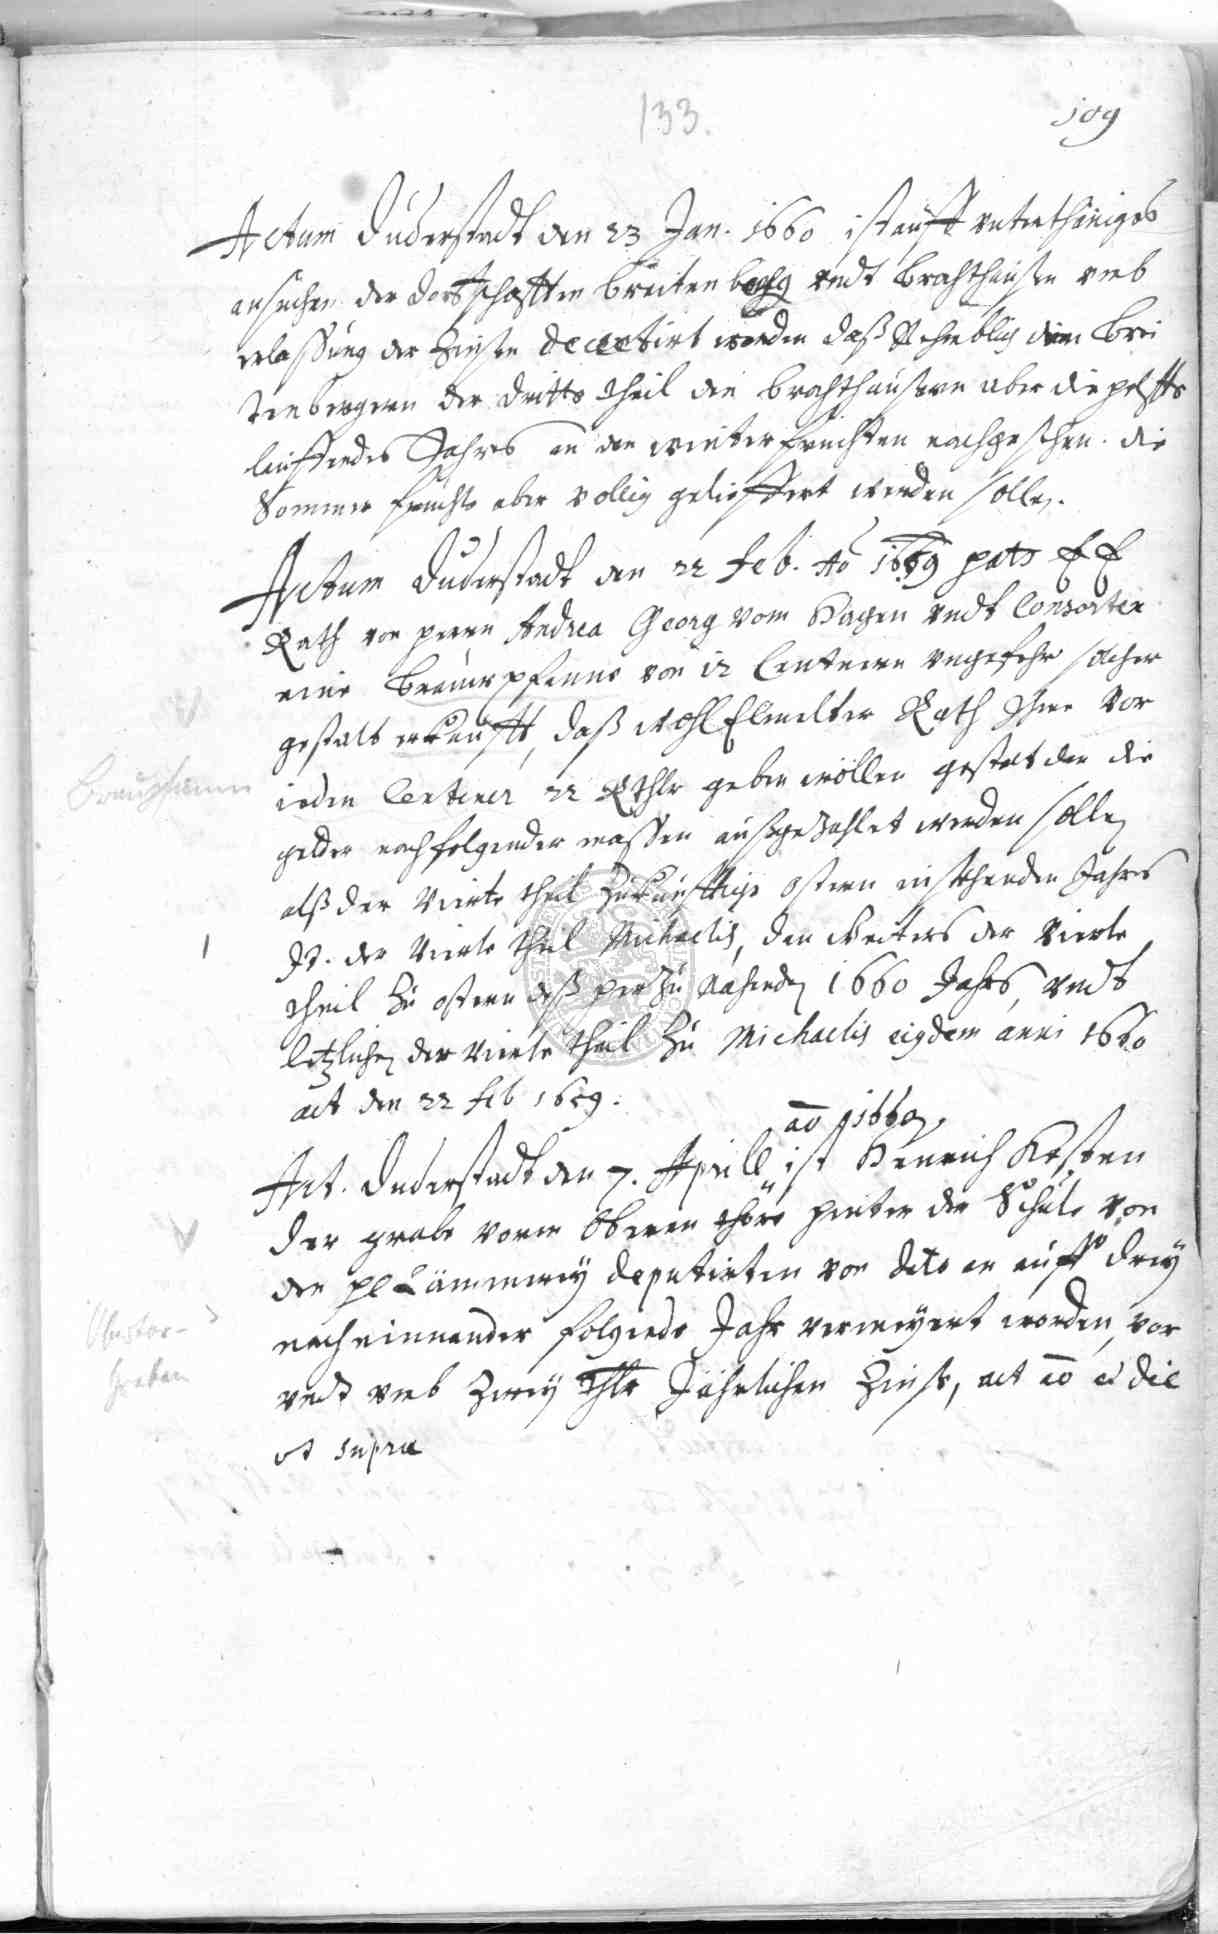 133.
109
Actum Duderstadt den 23 Jan. 1660 ist auff unterthäniges
ansuchen der dorffschafften Breitenberg undt Brochthausen umb
erlassung der Zinsen decretirt worden daß Nehmblich den Brei
tenbergern der dritte theil den Brochthausern aber die helffte
lauffendes Jahres an den winterfruchten nachgesehen. die
Sommer fruchte aber vollig geliffert werden sollen.
Actum Duderstadt den 22 feb. Ao 1659 hatt E E
Rath von herrn Andrea Georg vom Hagen undt Consorten
eine Brauwpfanne von 12 Centenern ungefehr solcher
gestalt erkaufft, daß wohlElmelter Rath Ihme vor
ieden Centener 22 Rthlr geben wöllen gestalt den die
gelder nachfolgender massen außgezahlet werden sollen
alß der vierte theil zukunfftige ostern instehenden Jahres
It. der vierte theil Michaelis, den weiters der vierte
theil zu ostern deß herzu nahenden 1660 Jahrs, undt
letzlichen der vierte theil zu Michaelis eiusdem anni 1660
act den 22 feb 1659.
ao 1660
Act. Duderstadt den 7. Aprill ist Henrich Kesten
der grabe vorm Oberen thore hinter der Schule von
den Cämmerey deputirten von dato an auff drey
nacheinnander folgende Jahr vermeyert worden, vor
undt umb zwey Thlr Jährlichen Zinß, act ao et die
ut supra
Braupfanne
Obertor-
graben